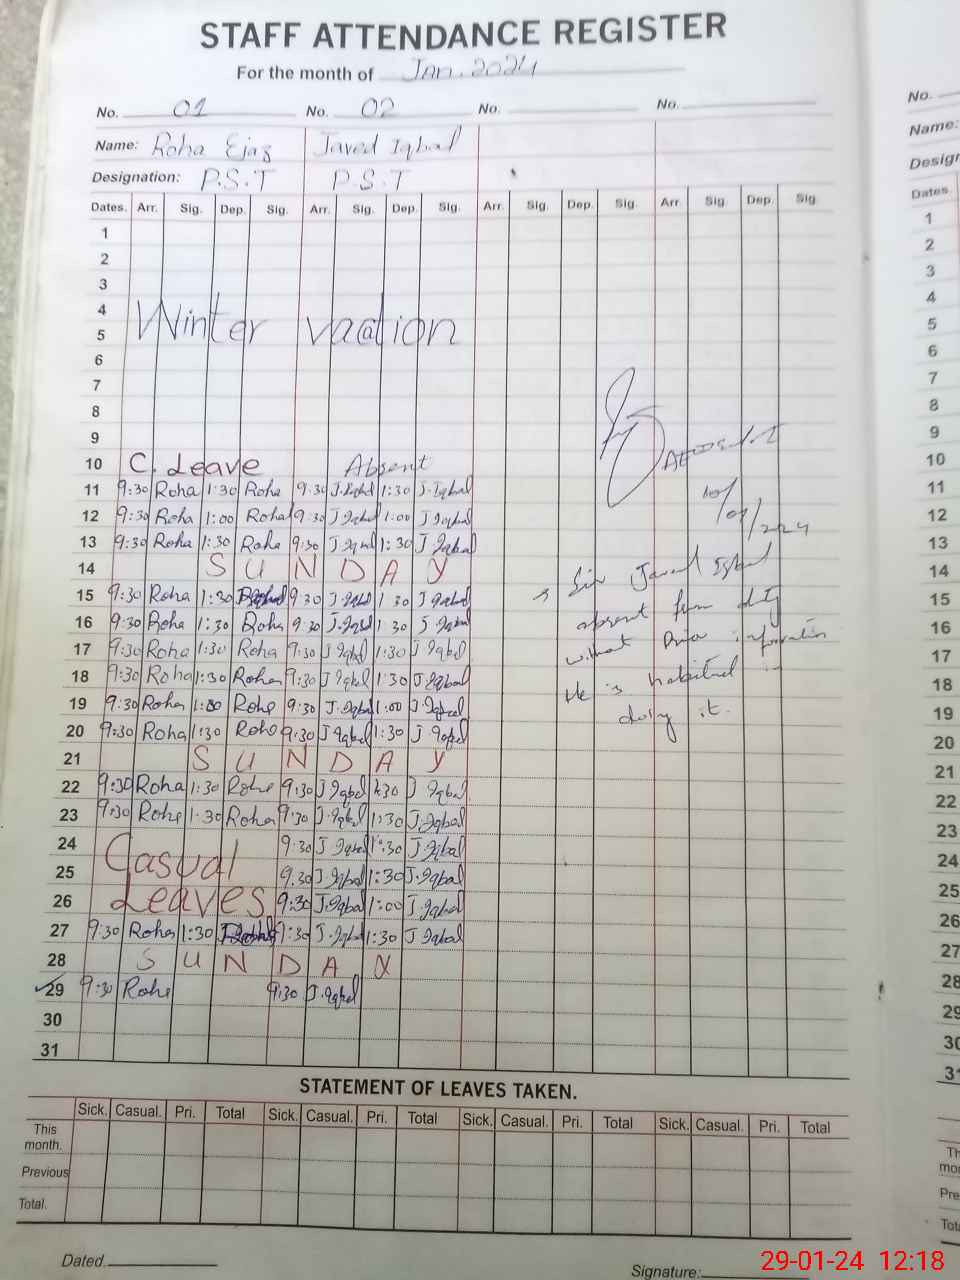 STAFF ATTENDANCE REGISTER
For the month of Jan. 2024
No. 01 No. 02 No. No.
Name: Roha Ejaz Javed Iqbal
Designation: P.S.T P.S.T
Dates. Arr. Sig. Dep. Sig. Arr. Sig. Dep. Sig. Arr. Sig. Dep. Sig. Arr. Sig. Dep. Sig.
1
2
3
4
Winter Vacation
5
6
7
8
9
10 C. Leave Absent
11 9:30 Roha 1:30 Roha 9:30 J.Iqbal 1:30 J.Iqbal
12 9:30 Roha 1:00 Roha 9:30 J.Iqbal 1:00 J.Iqbal
13 9:30 Roha 1:30 Roha 9:30 J.Iqbal 1:30 J.Iqbal
14 SUNDAY
15 9:30 Roha 1:30 Roha 9:30 J.Iqbal 1:30 J.Iqbal
16 9:30 Roha 1:30 Roha 9:30 J.Iqbal 1:30 J.Iqbal
17 9:30 Roha 1:30 Roha 9:30 J.Iqbal 1:30 J.Iqbal
18 9:30 Roha 1:30 Roha 9:30 J.Iqbal 1:30 J.Iqbal
19 9:30 Roha 1:00 Roha 9:30 J.Iqbal 1:00 J.Iqbal
20 9:30 Roha 1:30 Roha 9:30 J.Iqbal 1:30 J.Iqbal
21 SUNDAY
22 9:30 Roha 1:30 Roha 9:30 J.Iqbal 1:30 J.Iqbal
23 9:30 Roha 1:30 Roha 9:30 J.Iqbal 1:30 J.Iqbal
24 9:30 J.Iqbal 1:30 J.Iqbal
25 Casual 9:30 J.Iqbal 1:30 J.Iqbal
26 Leaves 9:30 J.Iqbal 1:00 J.Iqbal
27 9:30 Roha 1:30 Roha 1:30 J.Iqbal 1:30 J.Iqbal
28 SUNDAY
29 9:30 Roha 9:30 J.Iqbal
30
31
Sir Javed Iqbal
absent from duty
without Prior information
He is habitual in
doing it.
STATEMENT OF LEAVES TAKEN.
Sick. Casual. Pri. Total Sick. Casual. Pri. Total Sick. Casual. Pri. Total Sick. Casual. Pri. Total
This
month.
Previous
Total.
Dated.
Signature:
29-01-24 12:18
No.
Name:
Dates.
1
2
3
4
5
6
7
8
9
10
11
12
13
14
15
16
17
18
19
20
21
22
23
24
25
26
27
28
29
30